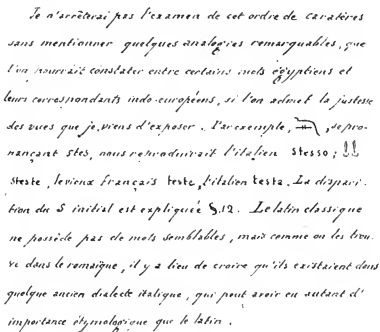 Je n'arrêterai pas l'examen de cet ordre de caratères
sans mentionner quelques analogies remarquables, que
l'on pourrait constater entre certains mots égyptiens et
leurs correspondants indo-européens, si l'on admet la justesse
des vues que je viens d'exposer. Par exemple, , se pro-
nonçant stes, nous reproduirait l'italien stesso;
steste, le vieux français teste, l'italien testa. La dispari-
tion du S initial est expliquée §.12. Le latin classique
ne possède pas de mots semblables, mais comme on les trou-
ve dans le romaïque, il y a lieu de croire qu'ils existaient dans
quelque ancien dialecte italique, qui peut avoir eu autant d'
importance étymologique que le latin.